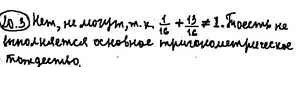 20.3 Нет, не могут, т.к. 1/16 + 13/16 ≠ 1. То есть не
выполняется основное тригонометрическое
тождество.